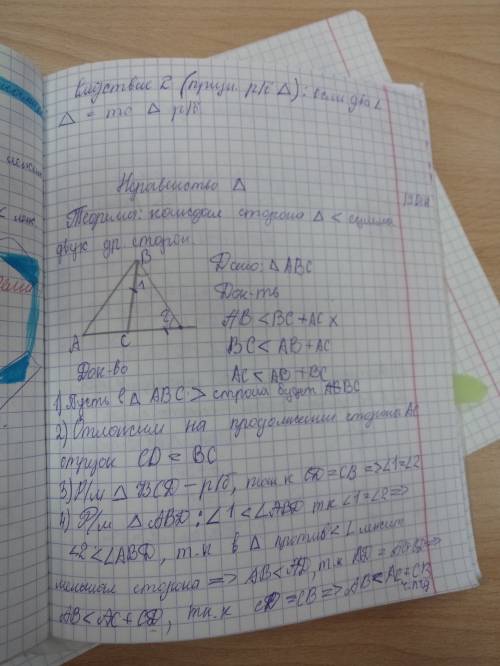 Следствие 2 (призн. р/б △): если два ∠
△ = то △ р/б
Неравенство △
Теорема: каждая сторона △ < суммы
двух др. сторон.
B
Дано: △ ABC
1
Док-ть
AB < BC + AC x
2
A C
BC < AB + AC
AC < AB + BC
Док-во
1) Пусть в △ ABC > строна будет
2) Отложим на продолжении стороны AC
отрезок CD = BC
3) Р/м △ BCD – р/б, так.к CD = CB => ∠1=∠2
4) Р/м △ ABD : ∠1 < ∠ABD т.к ∠1=∠2 =>
∠2 < ∠ABD, т.к в △ против < ∠ лежит
меньшая сторона => AB < AD, т.к AD =
AB < AC + CD, т.к CD = CB => AB < AC + CB
ч.т.д